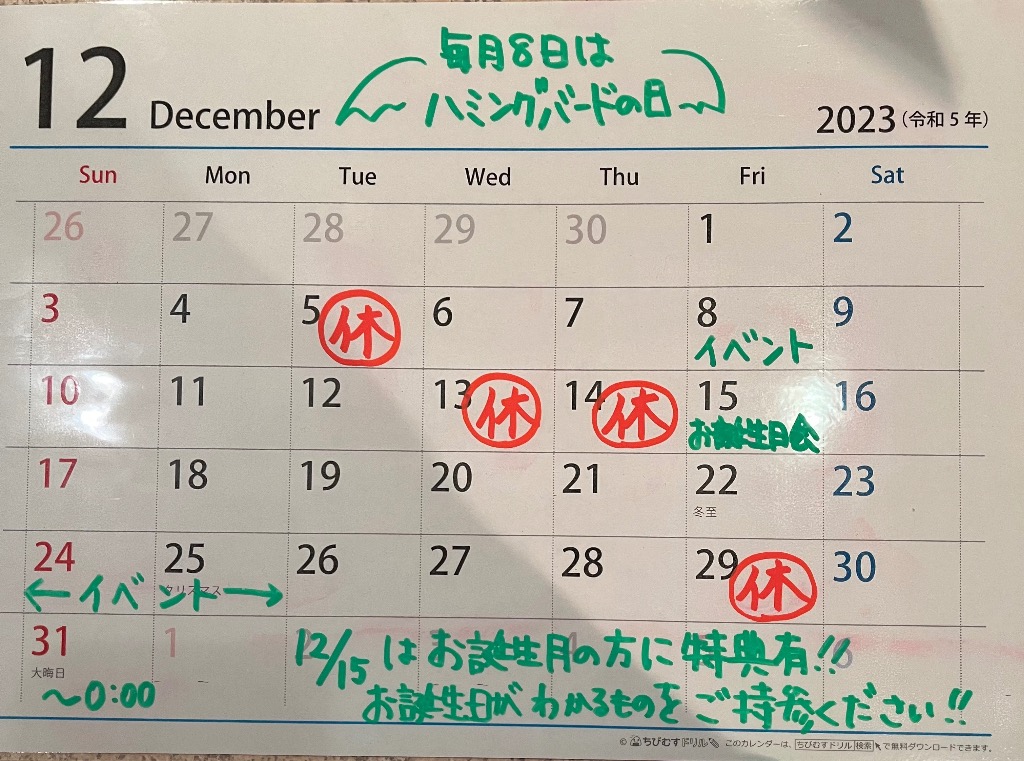 毎月8日は
ハミングバードの日
12 December
2023(令和5年)
Sun Mon Tue Wed Thu Fri Sat
26 27 28 29 30 1 2
3 4 5 休 6 7 8 9
イベント
10 11 12 13 休 14 休 15 16
お誕生日会
17 18 19 20 21 22 23
冬至
24 25 26 27 28 29 休 30
クリスマス
←イベント→
31 1
大晦日
~0:00
12/15はお誕生月の方に特典有!!
お誕生日がわかるものをご持参ください!!
© ちびむすドリル このカレンダーは、ちびむすドリル 検索 で無料ダウンロードできます。